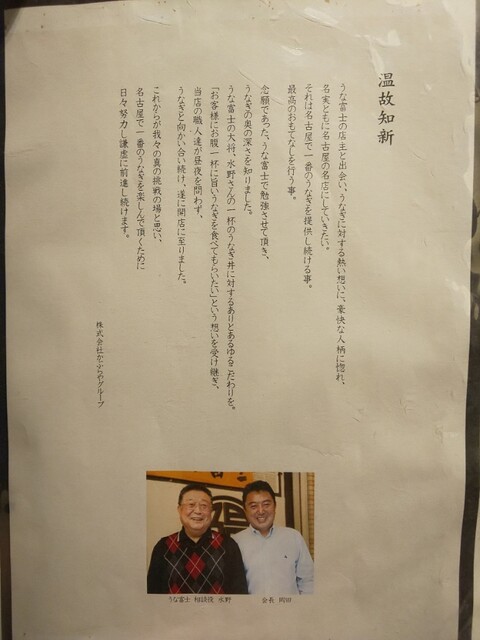 温故知新
うな富士の店主と出会い、うなぎに対する熱い想いに、豪快な人柄に惚れ、
名実ともに名古屋の名店にしていきたい。
それは名古屋で一番のうなぎを提供し続ける事。
最高のおもてなしを行う事。
念願であった、うな富士で勉強させて頂き、
うなぎの奥の深さを知りました。
うな富士の大将、水野さんの一杯のうなぎ丼に対するありとあらゆるこだわりを。
「お客様にお腹一杯に旨いうなぎを食べてもらいたい」という想いを受け継ぎ、
当店の職人達が昼夜を問わず、
うなぎと向かい合い続け、遂に開店に至りました。
これからが我々の真の挑戦の場と思い、
名古屋で一番のうなぎを楽しんで頂くために
日々努力し謙虚に前進し続けます。
株式会社かぶらやグループ
うな富士 相談役 水野
会長 岡田